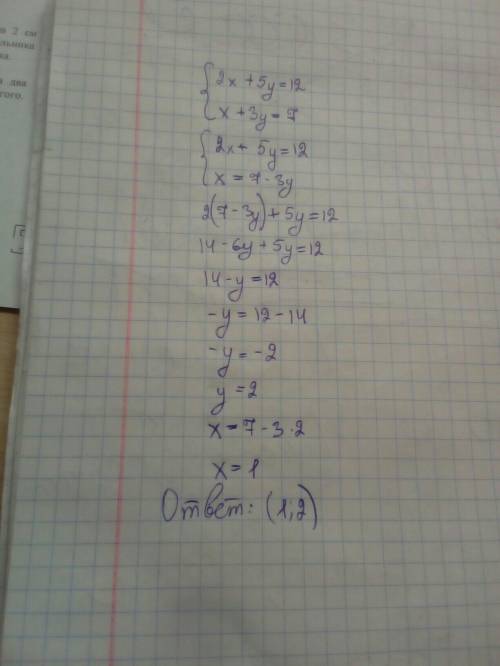 в 2 см
ка.
два
гого.
{2x + 5y = 12
x + 3y = 7
{2x + 5y = 12
x = 7 - 3y
2(7 - 3y) + 5y = 12
14 - 6y + 5y = 12
14 - y = 12
-y = 12 - 14
-y = -2
y = 2
x = 7 - 3 · 2
x = 1
Ответ: (1; 2)